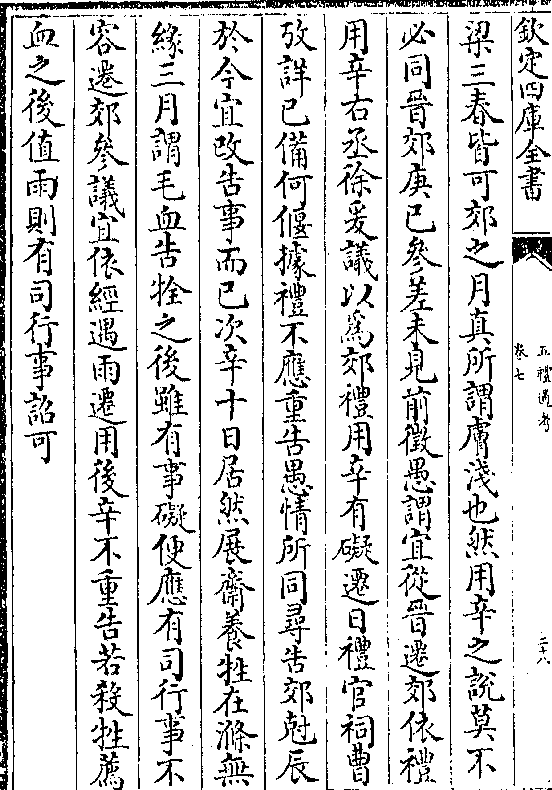 欽定四庫全書
五禮通考
卷七
二十八
梁三春皆可郊之月真所謂膚淺也然用辛之說莫不
必同晉郊庚已參差未見前徵愚謂宜從晉遷郊依禮
用辛右丞徐爰議以為郊禮用辛有礙遷日禮官祠曹
攷詳已備何偃據禮不應重告愚情所同尋告郊尅辰
於今宜改告事而已次辛十日居然展齋養牲在滌無
緣三月謂毛血告牷之後雖有事礙便應有司行事不
容遷郊參議宜依經遇雨遷用後辛不重告若殺牲薦
血之後值雨則有司行事詔可